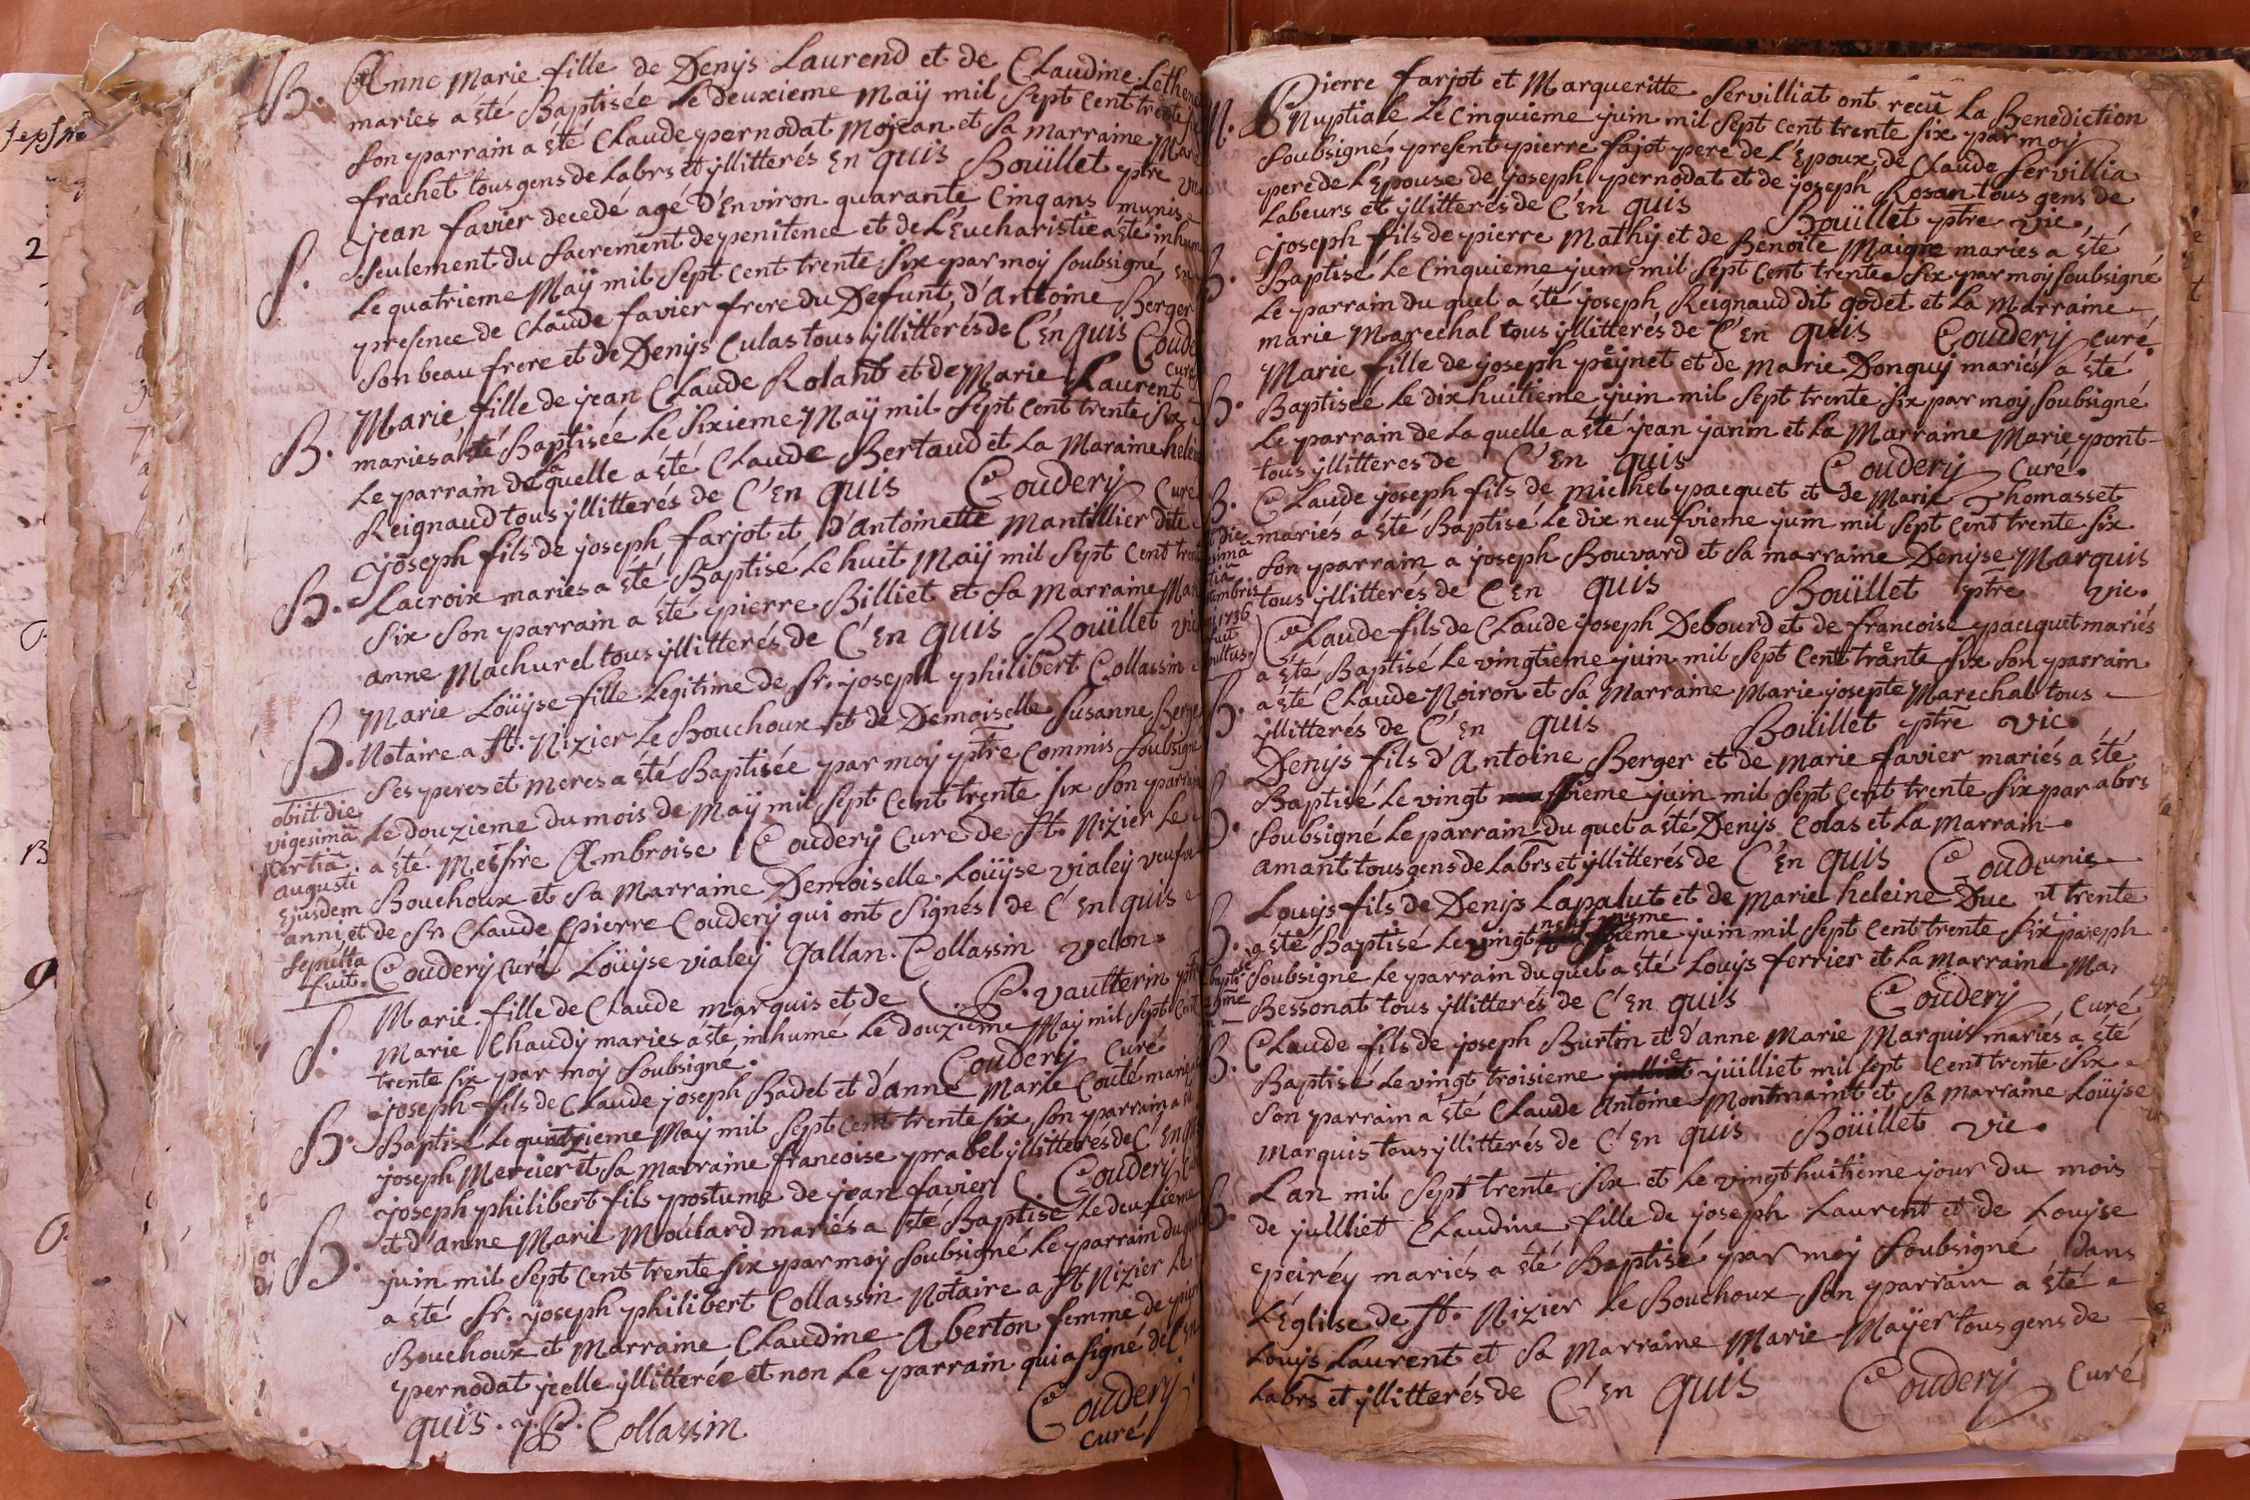 B. Anne Marie fille de Denys Laurend et de Claudine Lethen
mariés a été Baptisée Le deuxieme Maÿ mil Sept Cent trente
Son parrain a été Claude pernodat Mojean et Sa Marraine Mar
frachet tous gens de Labrs et yllitterés En quis Boüillet ptre
Jean favier decedé agé d'Environ quarante Cinq ans munis
S. Seulement du Sacrement de penitence et de L'Eucharistie a été inhum
Le quatrieme Maÿ mil Sept Cent trente Six par moy Soubsigné en
presence de Claude favier frere du Defunt, d'Antoine Berger
Son beau frere et de Denys Culas tous yllitterés de C'En quis Coude
Curé
Marie fille de jean Claude Rolant et de Marie Laurent
B. mariés a été Baptisée Le Sixieme Maÿ mil Sept Cent trente Six
Le parrain de la quelle a été Claude Bertaud et La Maraine helei
Reignaud tous yllitterés de C'En quis Coudery Curé
Joseph fils de joseph farjot et d'Antoinette Mantillier dite
B. Lacroix mariés a été Baptisé Le huit Maÿ mil Sept Cent trent
Six Son parrain a été pierre Billiet et Sa Marraine Mar
anne Machurel tous yllitterés de C'En quis Boüillet vic
Marie Loüyse fille Legitime de Sr. joseph philibert Collassin
B. Notaire a St. Nizier Le Bouchoux et de Demoiselle Susanne Berge
Ses peres et meres a été Baptisée par moy ptre Commis Soubsigné
Le douzieme du mois de Maÿ mil Sept Cent trente Six Son parrain
a été Messire Ambroise Coudery Curé de St. Nizier Le
Bouchoux et Sa Marraine Demoiselle Loüyse vialey veufve
et de Sr Claude pierre Coudery qui ont Signés de C'En quis
Coudery Curé Loüyse vialey Gallan. Collassin velon.
obiit die
vigesima
tertia
augusti
Ejusdem
anni
sepulta
fuit.
P. vautterin ptre
S. Marie fille de Claude marquis et de
Marie Chaudy mariés a été inhumé Le douzieme Maÿ mil Sept Cent
trente Six par moy Soubsigné. Coudery Curé
joseph fils de Claude joseph Badel et d'anne Marie Coute mariés
B. Baptisé Le quatzieme Maÿ mil Sept Cent trente Six, Son parrain a
joseph Mercier et Sa Marraine francoise prabel yllitterés de C'En qu
joseph philibert fils postume de jean favier Coudery
B. et d'anne Marie Moulard mariés a été Baptisé Le deuxieme
juin mil Sept Cent trente Six par moy Soubsigné Le parrain du
a été Sr. joseph philibert Collassin Notaire a St Nizier Le
Bouchoux et Marraine Claudine Aberton femme de
pernodat ycelle yllitterée et non Le parrain qui a signé de C'En
quis. j.p. Collassin Coudery
curé
M. Pierre farjot et Margueritte Servilliat ont recû La Benediction
Nuptiale Le Cinquieme juin mil Sept Cent trente Six par moy
Soubsigné, present pierre fajot pere de L'Epoux, de Claude Servillia
pere de L'Epouse de joseph pernodat et de joseph Rosan tous gens de
Labeurs et yllitterés de C'En quis Boüillet ptre vic.
Joseph fils de pierre Mathy et de Benoite Maigre mariés a été
B. Baptisé Le Cinquieme juin mil Sept Cent trente Six par moy Soubsigné
Le parrain du quel a été joseph Reignaud dit godet et La Marraine
marie Marechal tous yllitterés de C'En quis Coudery Curé
Marie fille de joseph peÿnet et de Marie Donguy mariés a été
B. Baptisée Le dix huitieme juin mil Sept trente Six par moy Soubsigné
Le parrain de La quelle a été jean janin et La Marraine Marie pont-
tous yllitteres de C'En quis Coudery Curé.
B. Claude joseph fils de michel pacquet et de Marie Thomasset
mariés a été Baptisé Le dix neufvieme juin mil Sept Cent trente Six
Son parrain a joseph Bouvard et Sa marraine Denyse Marquis
tous yllitterés de C'En quis Boüillet ptre vic.
die
sima
tia
embris
1736
fuit
ultus.
Claude fils de Claude joseph Debourd et de francoise pacquet mariés
a été Baptisé Le vingtieme juin mil Sept Cent trente Six Son parrain
B. a été Claude Noiron et Sa Marraine Marie josepte Marechal tous
yllitterés de C'En quis Boüillet ptre vic.
Denys fils d'Antoine Berger et de Marie favier mariés a été
B. Baptisé Le vingt ieme juin mil Sept Cent trente Six par abrs
Soubsigné Le parrain du quel a été Denys Colas et La Marrain
amant tous gens de Labrs et yllitterés de C'En quis Coude unie
Louys fils de Denys Lapalut et de Marie heleine Duc nt trente
B. a été Baptisé Le vingt neufvieme juin mil Sept Cent trente Six par eph
Soubsigné Le parrain du quel a été Louys ferrier et La Marraine Mar
Bessonat tous yllitterés de C'En quis Coudery Curé
B. Claude fils de joseph Burtin et d'anne Marie Marquis mariés a été
Baptisé Le vingt troisieme jüilliet mil Sept Cent trente Six
Son parrain a été Claude Antoine Montmaint et Sa Marraine Loüyse
Marquis tous yllitterés de C'En quis Boüillet vic.
Lan mil Sept trente Six et Le vingt huitieme jour du mois
B. de jullliet Claudine fille de joseph Laurent et de Louyse
peiréy mariés a été Baptisé par moy Soubsigné dans
L'Eglise de St. Nizier Le Bouchoux, Son parrain a été
Louys Laurent et Sa Marraine Marie Maÿer tous gens de
Labrs et yllitterés de C'En quis Coudery Curé